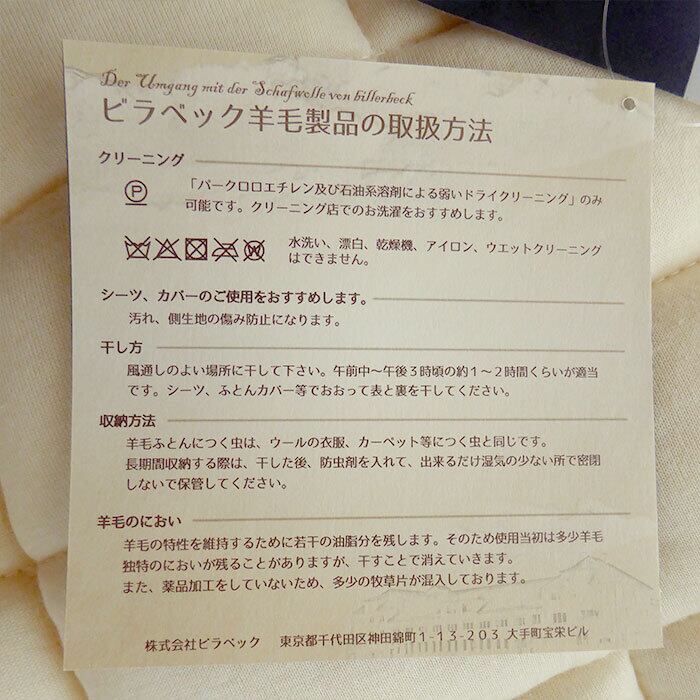 Der Umgang mit der Schafwolle von billerbeck
ビラベック羊毛製品の取扱方法
クリーニング
P
「パークロロエチレン及び石油系溶剤による弱いドライクリーニング」のみ
可能です。クリーニング店でのお洗濯をおすすめします。
水洗い、漂白、乾燥機、アイロン、ウエットクリーニング
はできません。
シーツ、カバーのご使用をおすすめします。
汚れ、側生地の傷み防止になります。
干し方
風通しのよい場所に干して下さい。午前中〜午後3時頃の約1〜2時間くらいが適当
です。シーツ、ふとんカバー等でおおって表と裏を干してください。
収納方法
羊毛ふとんにつく虫は、ウールの衣服、カーペット等につく虫と同じです。
長期間収納する際は、干した後、防虫剤を入れて、出来るだけ湿気の少ない所で密閉
しないで保管してください。
羊毛のにおい
羊毛の特性を維持するために若干の油脂分を残します。そのため使用当初は多少羊毛
独特のにおいが残ることがありますが、干すことで消えていきます。
また、薬品加工をしていないため、多少の牧草片が混入しております。
株式会社ビラベック 東京都千代田区神田錦町1-13-203 大手町宝栄ビル